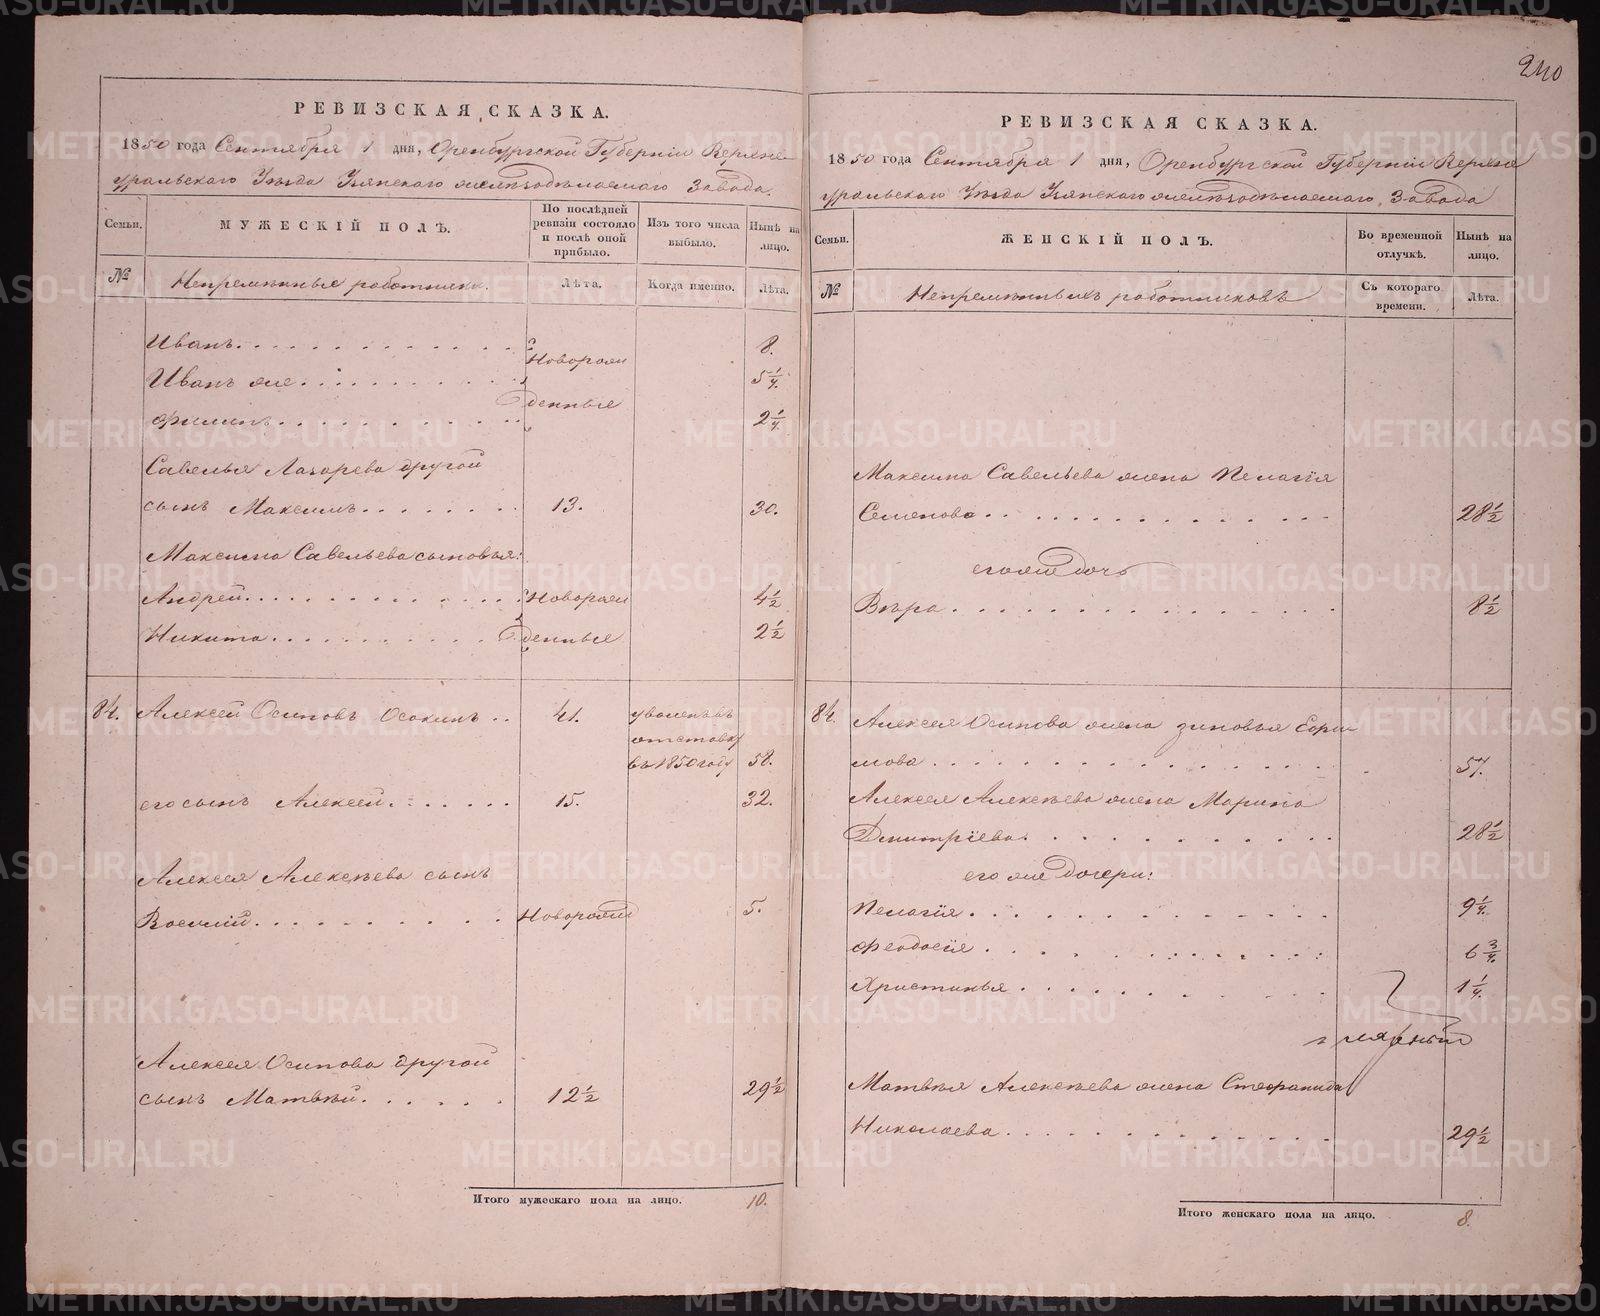 240
РЕВИЗСКАЯ СКАЗКА.
1850 года Сентября 1 дня, Оренбургской Губерніи Верхне-
уральскаго Уѣзда Узянскаго желѣзодѣлаемаго Завода.
Семьи.
МУЖЕСКІЙ ПОЛЪ.
По послѣдней ревизіи состояло и послѣ оной прибыло.
Изъ того числа выбыло.
Нынѣ на лицо.
№
Непремѣнные работники.
Лѣта.
Когда именно.
Лѣта.
Иванъ. 8.
Новорож
Иванъ же. 5 1/4.
денные
Филипъ. 2 1/4.
Савелья Лазорева другой
сынъ Максимъ. 13. 30.
Максима Савельева сыновья:
Андрей. Новорож 4 1/2
Никита. денные 2 1/2
84. Алексей Осиповъ Осокинъ .. 41. уволенъ въ
отставку
въ 1850 году 58.
его сынъ Алексей. 15. 32.
Алексея Алексѣева сынъ
Василій. Новорожд 5.
Алексея Осипова другой
сынъ Матвѣй. 12 1/2 29 1/2
Итого мужескаго пола на лицо. 10.
РЕВИЗСКАЯ СКАЗКА.
1850 года Сентября 1 дня, Оренбургской Губерніи Верхне
уральскаго Уѣзда Узянскаго желѣзодѣлаемаго Завода
Семьи.
ЖЕНСКІЙ ПОЛЪ.
Во временной отлучкѣ.
Нынѣ на лицо.
№
Непремѣнныхъ работниковъ
Съ котораго времени.
Лѣта.
Максима Савельева жена Пелагія
Семенова. 28 1/2
его же дочь
Вѣра. 8 1/2
84. Алексея Осипова жена Зиновья Ефри
мова. 57.
Алексея Алексѣева жена Марина
Дмитріева. 28 1/2
его же дочери:
Пелагія. 9 1/4.
Феодосія. 6 3/4.
Христинья. 1 1/4.
Матвѣя Алексѣева жена Стефанида
Николаева. 29 1/2
Итого женскаго пола на лицо. 8.
METRIKI.GASO-URAL.RU